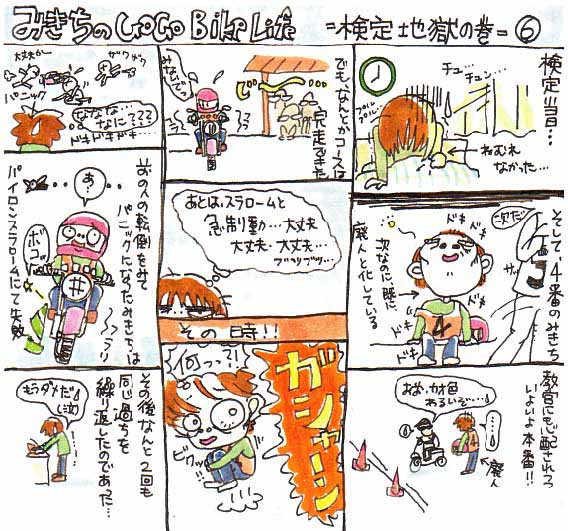 みきちの GO GO Bike Life =検定地獄の巻= ⑥
検定当日…
チュ…
チュン…
ねむれ
なかった…
そして、4番のみきち
次だ
サッ
ドキ
ドキ
ドキ
ドキ
次なのに既に
廃人と化している
4
教官にも心配されつつ
いよいよ本番!!
おお、カオ色
わるいぞ…
…。
廃人
でも、なんとかコースは
完走できた
みないで〜
あとは、スラロームと
急制動…大丈夫
大丈夫・大丈夫…
ブツブツ…
その時!!
ガシャーン
何っっ?!
ビクッ
大丈夫かー
ザワザワ
パニック
なななな…
なに???
ドキドキドキ…
あ?
前の人の転倒をみて
パニックになったみきちは
パイロンスラロームにて失敗
ボコッ
フラリ
その後なんと2回も
同じ過ちを
繰り返したのであった…
もうダメだ
(泣)